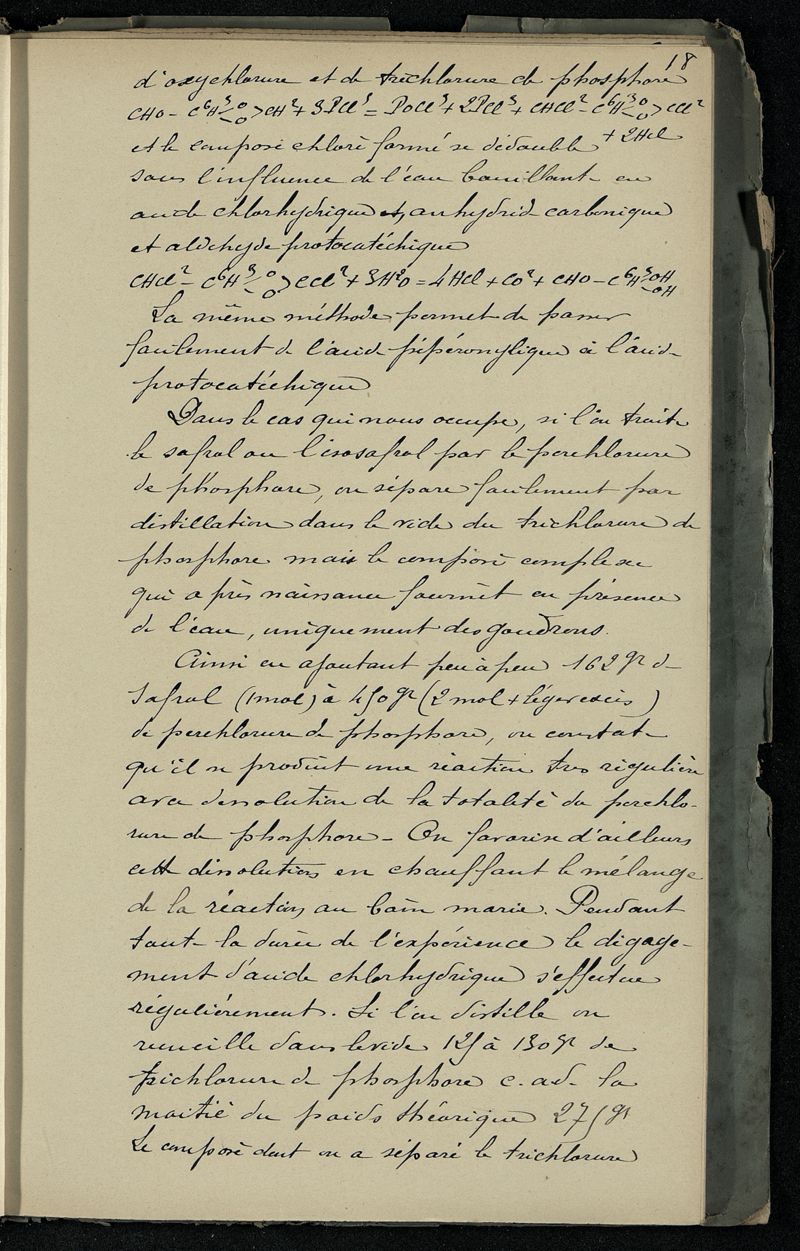 18
d'oxychlorure et de trichlorure de phosphore
CHO - C⁶H³ -O -O > CH² + 3PCl⁵ = POCl³ + 2PCl³ + CHCl² - C⁶H³ -O -O > CCl²
+ 2HCl
et le composé chloré formé se dédouble
sous l'influence de l'eau bouillante en
acide chlorhydrique, anhydride carbonique
et aldehyde protocatéchique
CHCl² - C⁶H³ -O -O > CCl² + 3H²O = 4HCl + CO² + CHO - C⁶H³ -OH -OH
La même méthode permet de passer
facilement de l'acide pipéronylique à l'acide
protocatéchique
Dans le cas qui nous occupe, si l'on traite
le safrol ou l'isosafrol par le perchlorure
de phosphore, on sépare facilement par
distillation dans le vide du trichlorure de
phosphore mais le composé complexe
qui a pris naissance fournit en présence
de l'eau, uniquement des goudrons.
Ainsi en ajoutant peu à peu 162 gr de
Safrol (1 mol) à 450 gr (2 mol + léger excès)
de perchlorure de phosphore, on constate
qu'il se produit une réaction très régulière
avec dissolution de la totalité du perchlo-
rure de phosphore - On favorise d'ailleurs
cette dissolution en chauffant le mélange
de la réaction au bain marie. Pendant
toute la durée de l'expérience le dégage-
ment d'acide chlorhydrique s'effectue
régulièrement. Si l'on distille on
recueille dans le vide 125 à 130 gr de
trichlorure de phosphore c.a d. la
moitié du poids théorique 275 gr
Le composé dont on a séparé le trichlorure